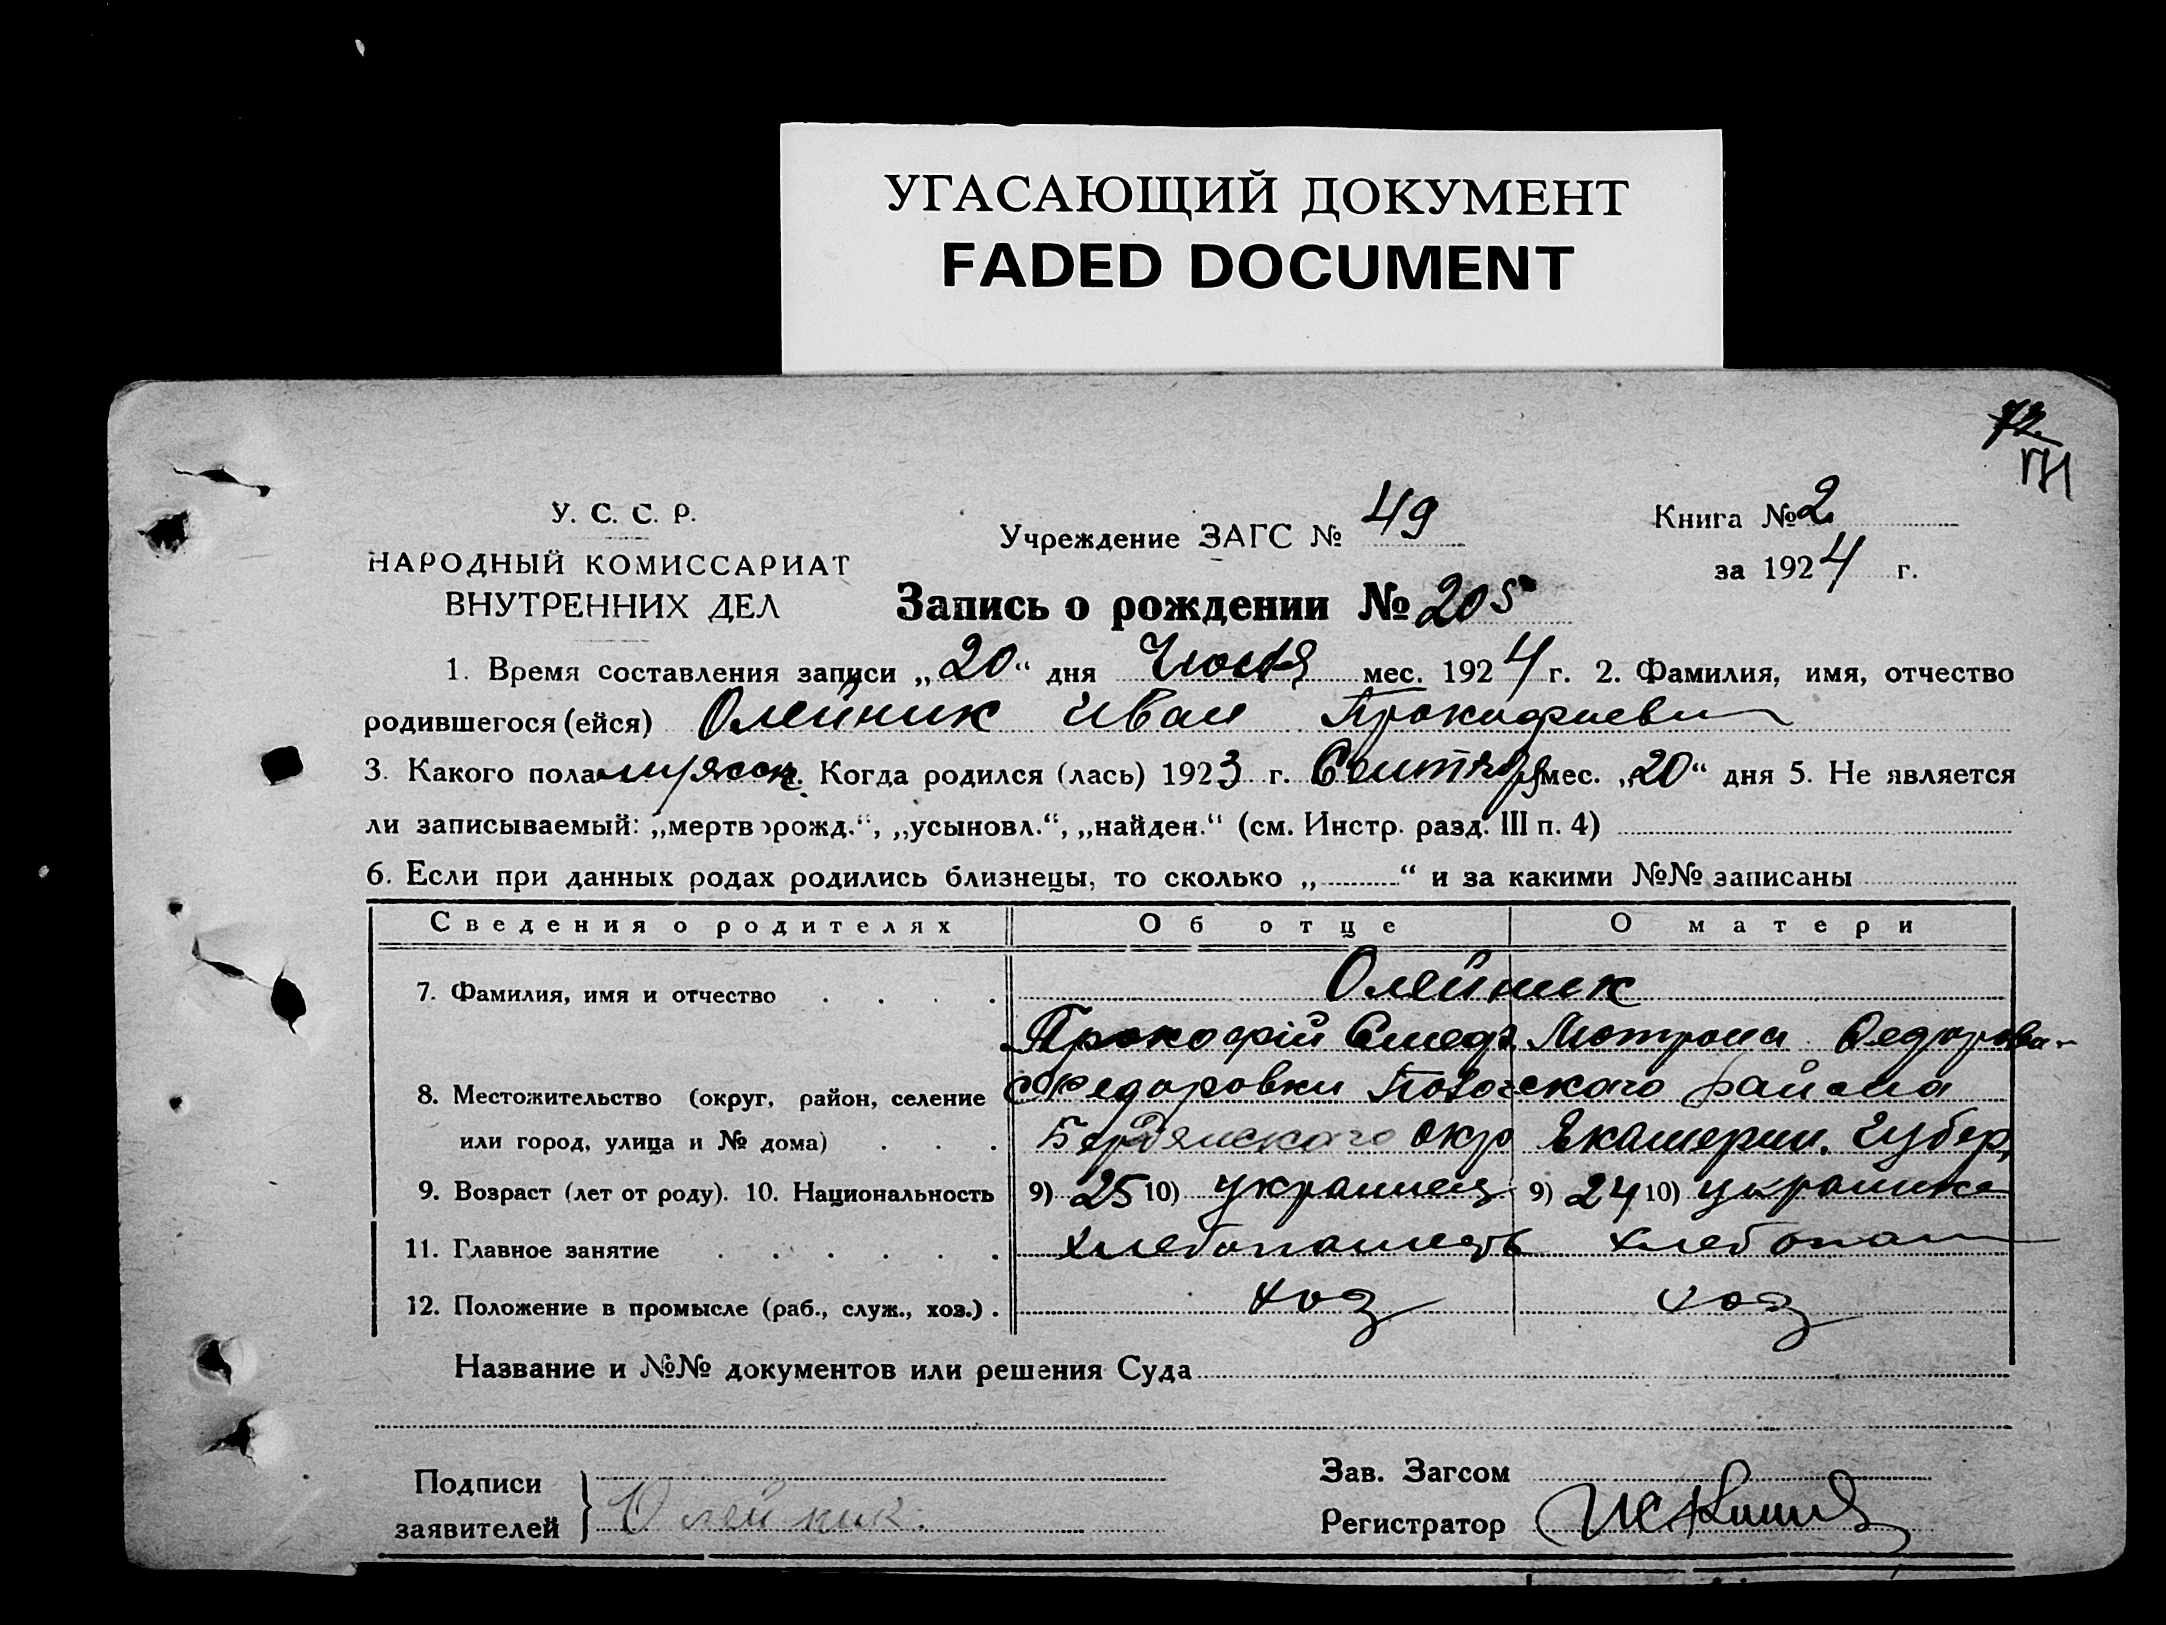 УГАСАЮЩИЙ ДОКУМЕНТ
FADED DOCUMENT
72
У. С. С. Р.
НАРОДНЫЙ КОМИССАРИАТ
ВНУТРЕННИХ ДЕЛ
Учреждение ЗАГС № 49
Книга № 2
за 1924 г.
Запись о рождении № 205
1. Время составления записи „20“ дня Июня мес. 1924 г. 2. Фамилия, имя, отчество
родившегося (ейся) Олейник Иван Прокофиевич
3. Какого пола Когда родился (лась) 1923 г. Сентября мес. „20“ дня 5. Не является
ли записываемый: „мертворожд.“, „усыновл.“, „найден.“ (см. Инстр. разд. III п. 4)
6. Если при данных родах родились близнецы, то сколько „ “ и за какими №№ записаны
Сведения о родителях Об отце О матери
7. Фамилия, имя и отчество . . . . Олейник
Прокофій Мотрона Федорова
8. Местожительство (округ, район, селение Федоровки района
или город, улица и № дома) . . . Бердянского окр Екатерин. Губер,
9. Возраст (лет от роду). 10. Национальность 9) 25 10) украинец 9) 24 10) украинка
11. Главное занятие . . . . . . хлебопашець хлебопаш
12. Положение в промысле (раб., служ., хоз.) . хоз хоз
Название и №№ документов или решения Суда
Подписи
заявителей } Олейник
Зав. Загсом
Регистратор